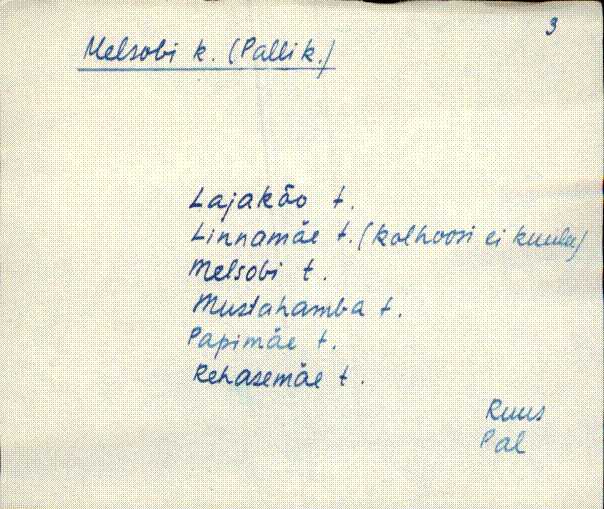 3
Melsobi k. (Palli k.)
Lajakäo t.
Linnamäe t. (kolhoosi ei kuulu)
Melsobi t.
Mustahamba t.
Papimäe t.
Rehasemäe t.
Ruus
Pal